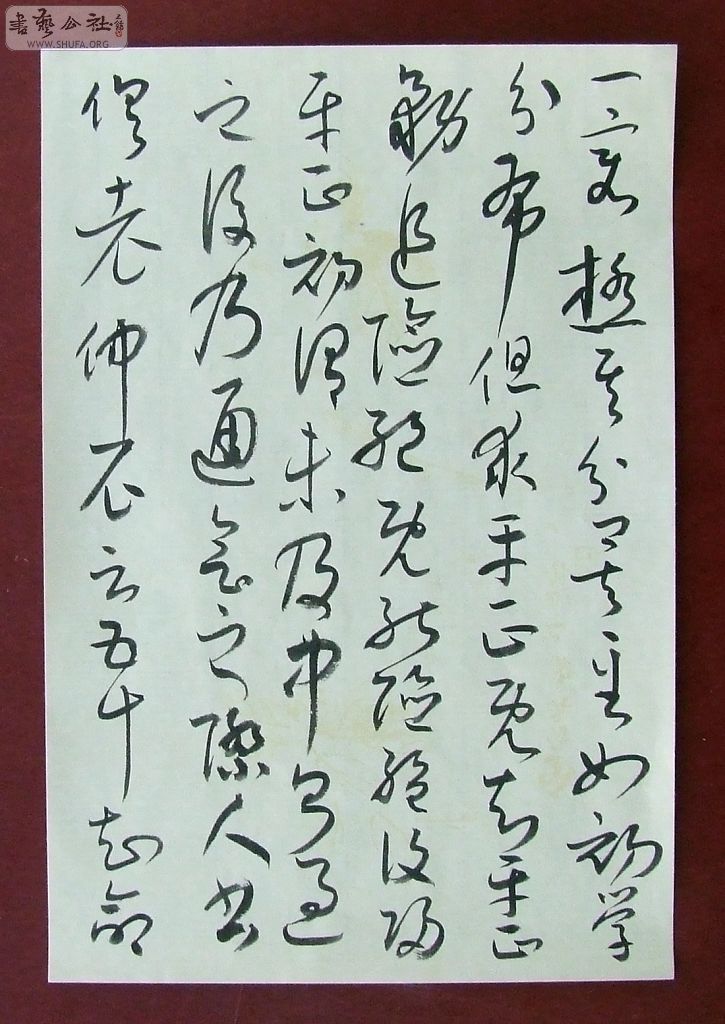 書藝公社
WWW.SHUFA.ORG
一變極其分矣至如初學
分布但求平正既知平正
務追險絕既能險絕復歸
平正初謂未及中則過
之後乃通會之際人書
俱老仲尼云五十知命